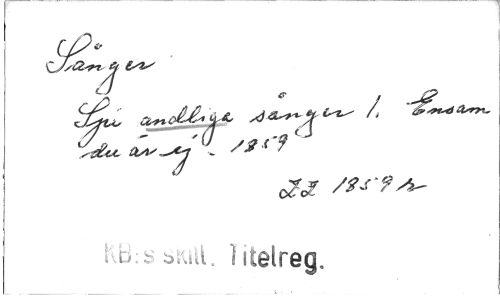 Sånger
Sju andliga sånger 1. Ensam
du är ej. 1859
ZZ 1859 r
KB:s skill. Titelreg.